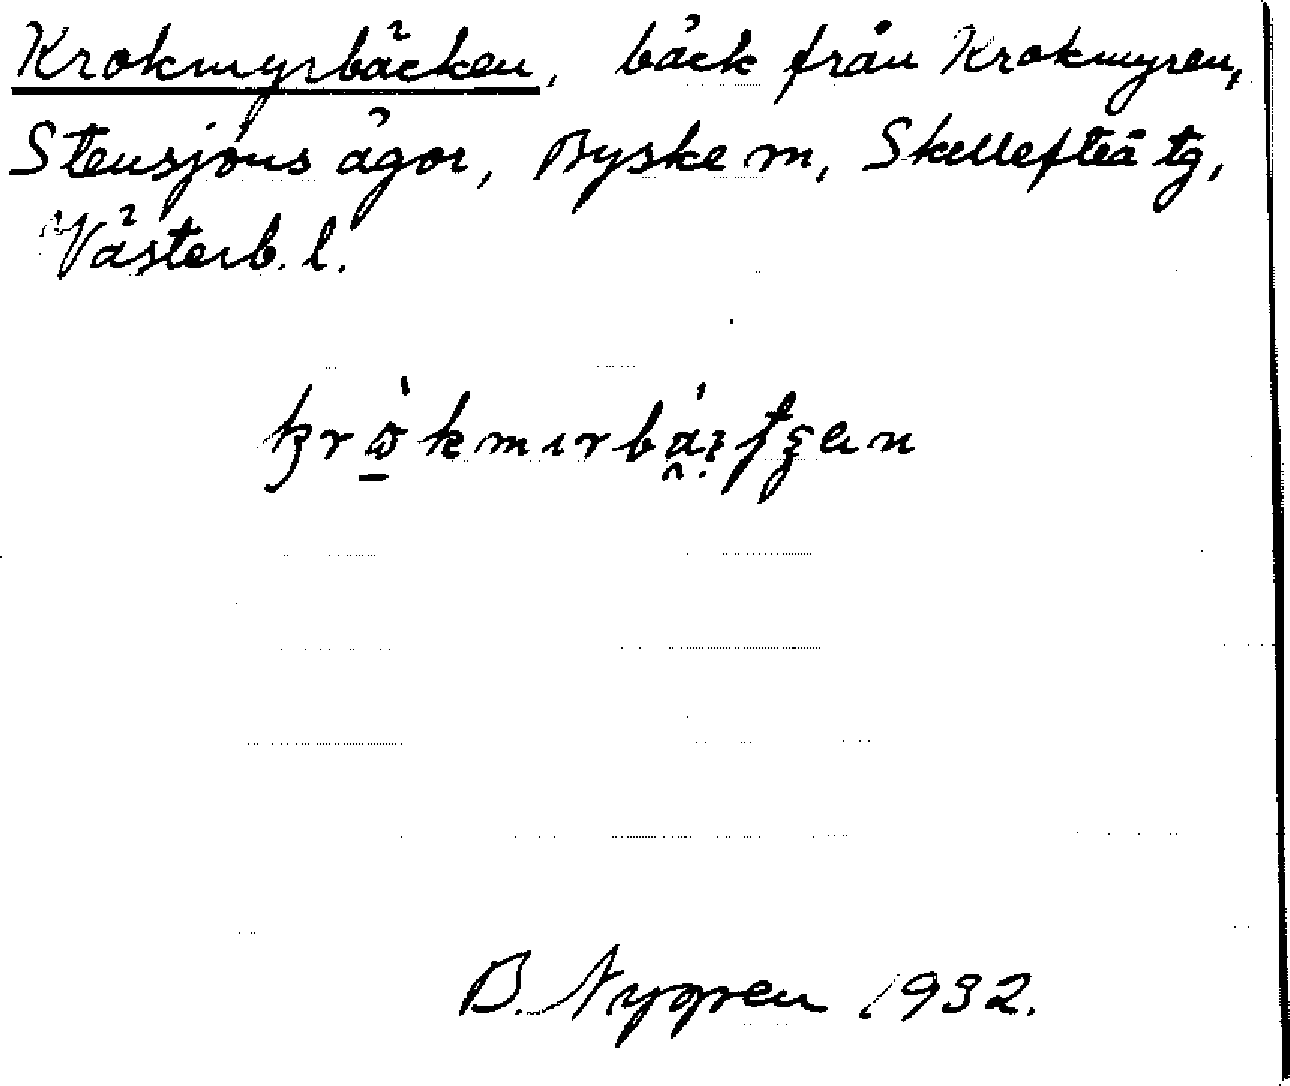 Krokmyrbäcken, bäck från Krokmyren,
Stensjöns ägor, Byske sn, Skellefteå tg,
Västerb. l.
B. Nygren 1932.